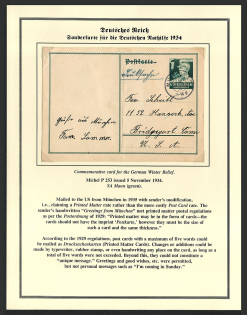 Deutsches Reich
Sonderkarte für die Deutschen Nothilfe 1934
Postkarte
Drucksache
Fra Schutt
1152 Hancock Ave
Bridgeport Conn
U. S. A.
Grüße aus München
Commemorative card for the German Winter Relief.
Michel P 253 issued 5 November 1934.
Mailed to the US from München in 1935 with sender's modification,
i.e., claiming a Printed Matter rate rather than the more costly Post Card rate. The
sender's handwritten "Greetings from München" met printed matter postal regulations
as per the Postordnung of 1929: "Printed matter may be in the form of cards—the
cards should not have the imprint 'Postkarte,' however they must be the size of
such a card and the same thickness."
According to the 1929 regulations, post cards with a maximum of five words could
be mailed as Drucksachenkarten (Printed Matter Cards). Changes or addition could be
made by typewriter, rubber stamp, or even handwriting any place on the card, as long as a
total of five words were not exceeded. Beyond this, they could not constitute a
"unique message." Greetings and good wishes, etc. were permitted,
but not personal messages such as "I'm coming to Sunday."